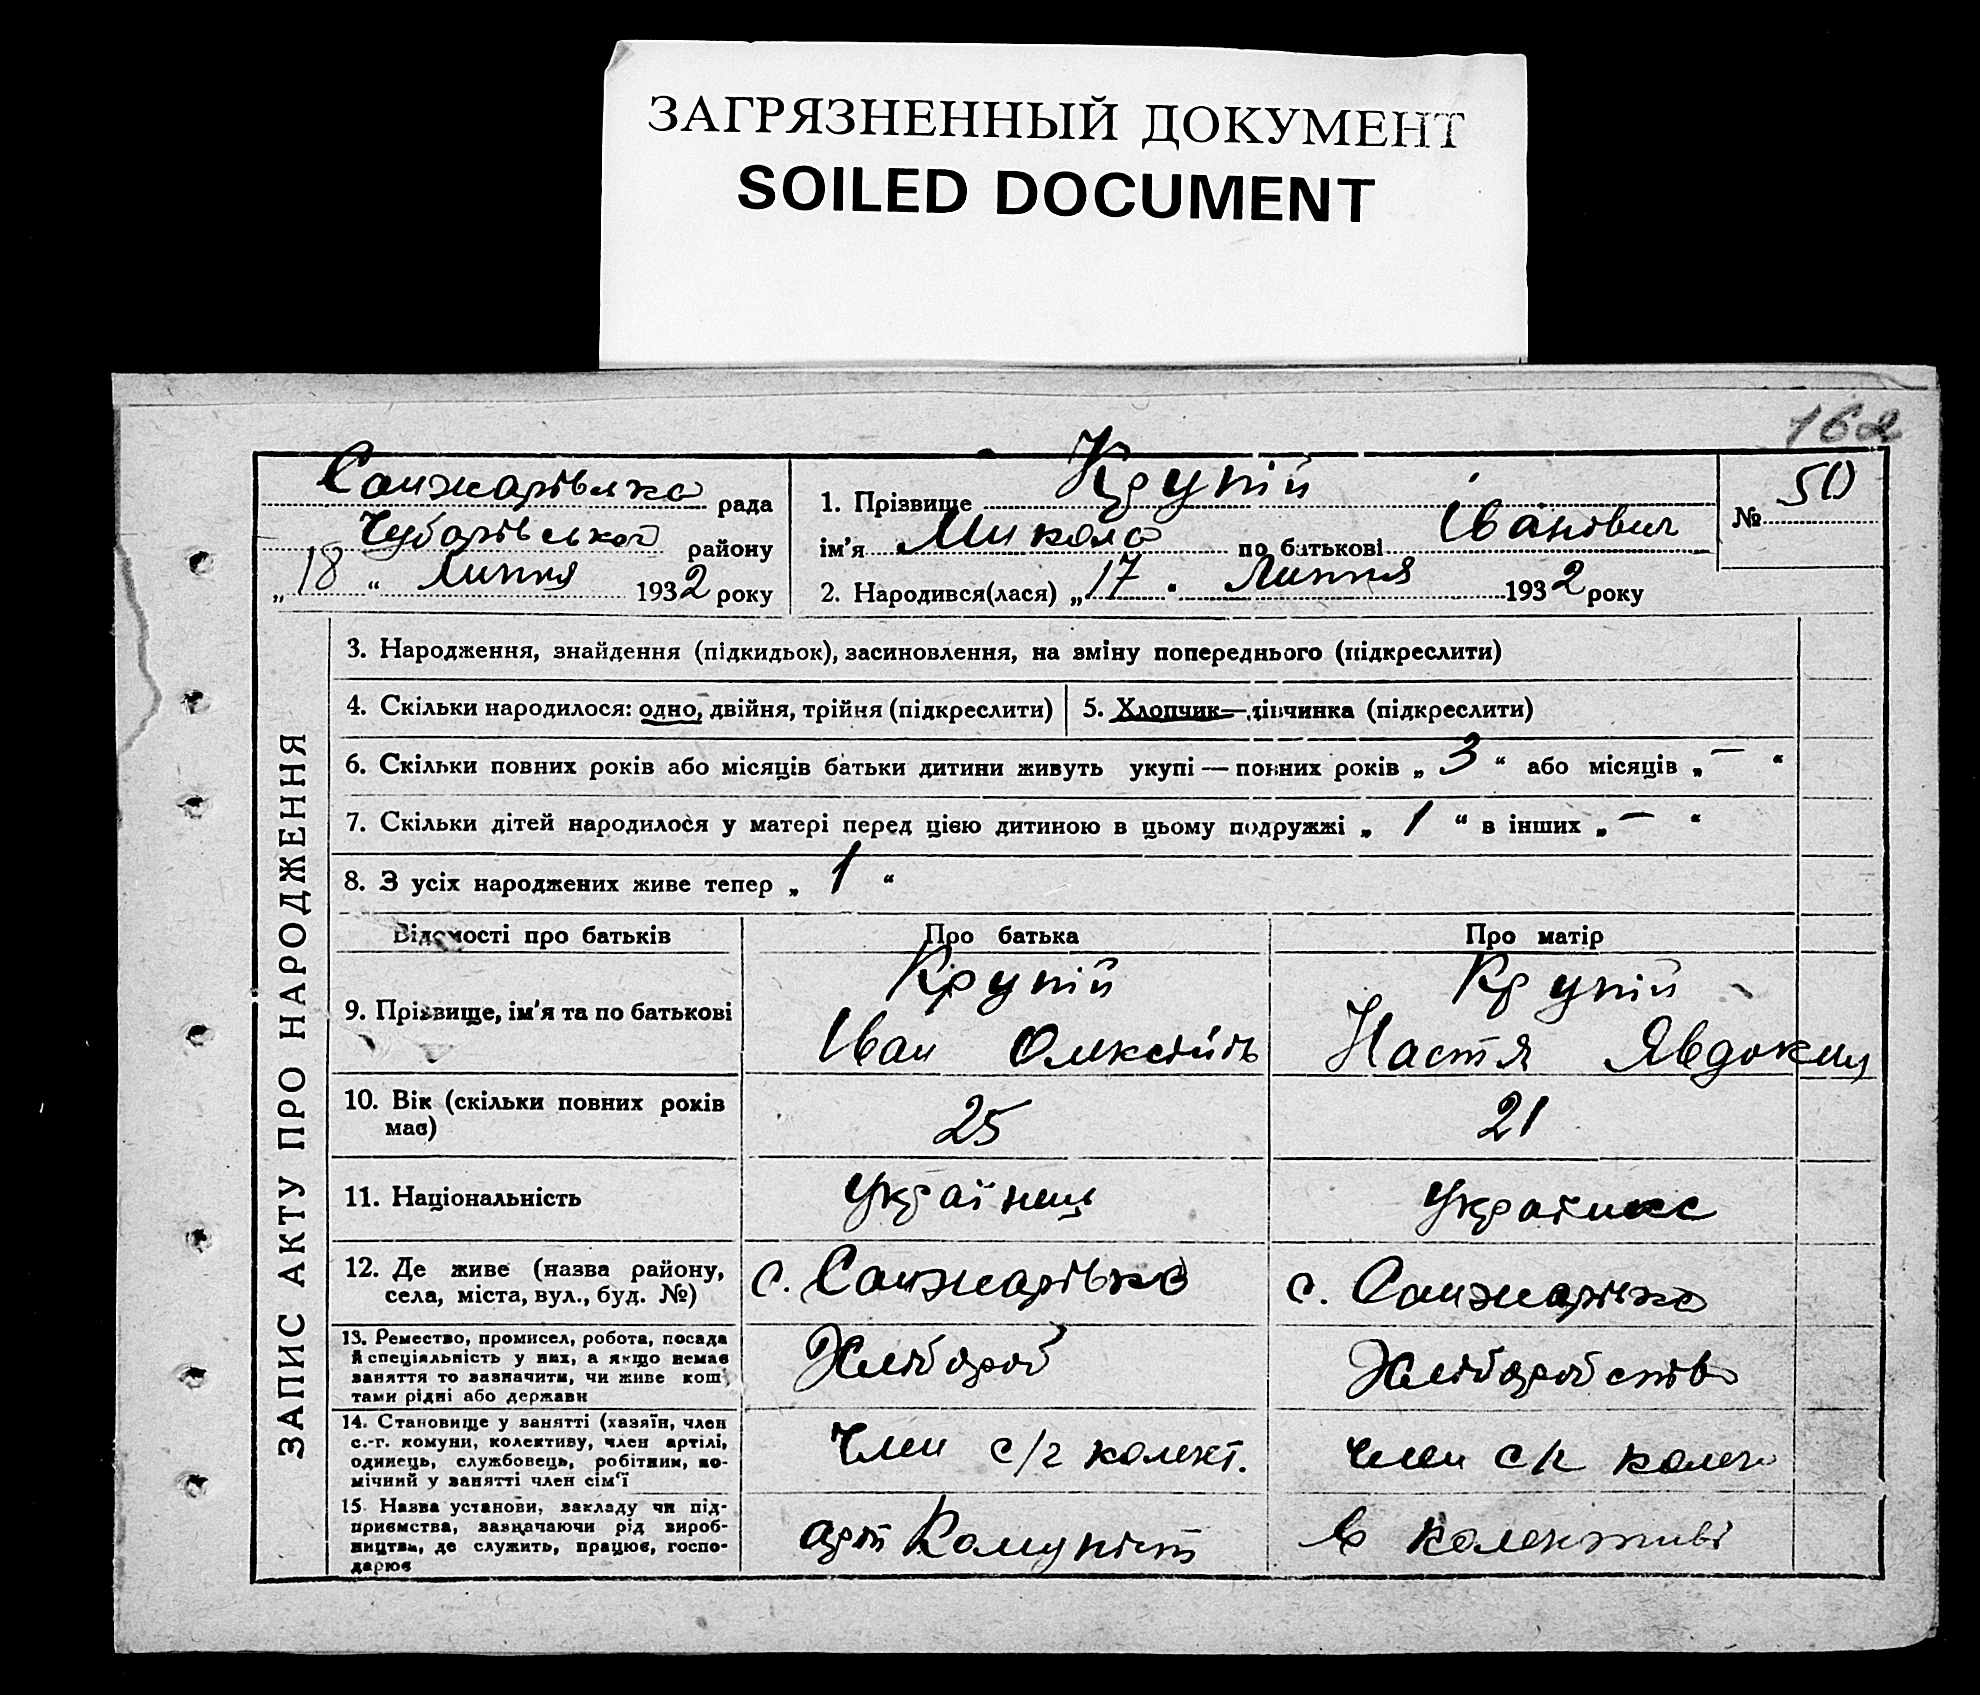 ЗАГРЯЗНЕННЫЙ ДОКУМЕНТ
SOILED DOCUMENT
162
Санжарівська рада
Чубарівського району
„18“ Липня 1932 року
1. Прізвище Крупій
ім'я Микола по батькові Іванович
2. Народився(лася) „17“ Липня 1932 року
№ 50
ЗАПИС АКТУ ПРО НАРОДЖЕННЯ
3. Народження, знайдення (підкидьок), засиновлення, на зміну попереднього (підкреслити)
4. Скільки народилося: одно, двійня, трійня (підкреслити)
5. Хлопчик—дівчинка (підкреслити)
6. Скільки повних років або місяців батьки дитини живуть укупі — повних років „3“ або місяців „—“
7. Скільки дітей народилося у матері перед цією дитиною в цьому подружжі „1“ в інших „—“
8. З усіх народжених живе тепер „1“
Відомості про батьків Про батька Про матір
9. Прізвище, ім'я та по батькові
Крупій
Іван
Крупій
Настя
10. Вік (скільки повних років
має)
25
21
11. Національність
Українець
Українка
12. Де живе (назва району,
села, міста, вул., буд. №)
с. Санжарівка
с. Санжарівка
13. Ремество, промисел, робота, посада
й спеціяльність у них, а якщо немає
заняття то зазначити, чи живе кош
тами рідні або держави
Хлібороб
Хліборобство
14. Становище у занятті (хазяїн, член
с.-г. комуни, колективу, член артілі,
одинець, службовець, робітник, по-
мічний у занятті член сім'ї
Член с/г колект.
член с/г колек
15. Назва установи, закладу чи під-
приємства, зазначаючи рід вироб-
ництва, де служить, працює, госпо-
дарює
арт Комуніст
в колективі